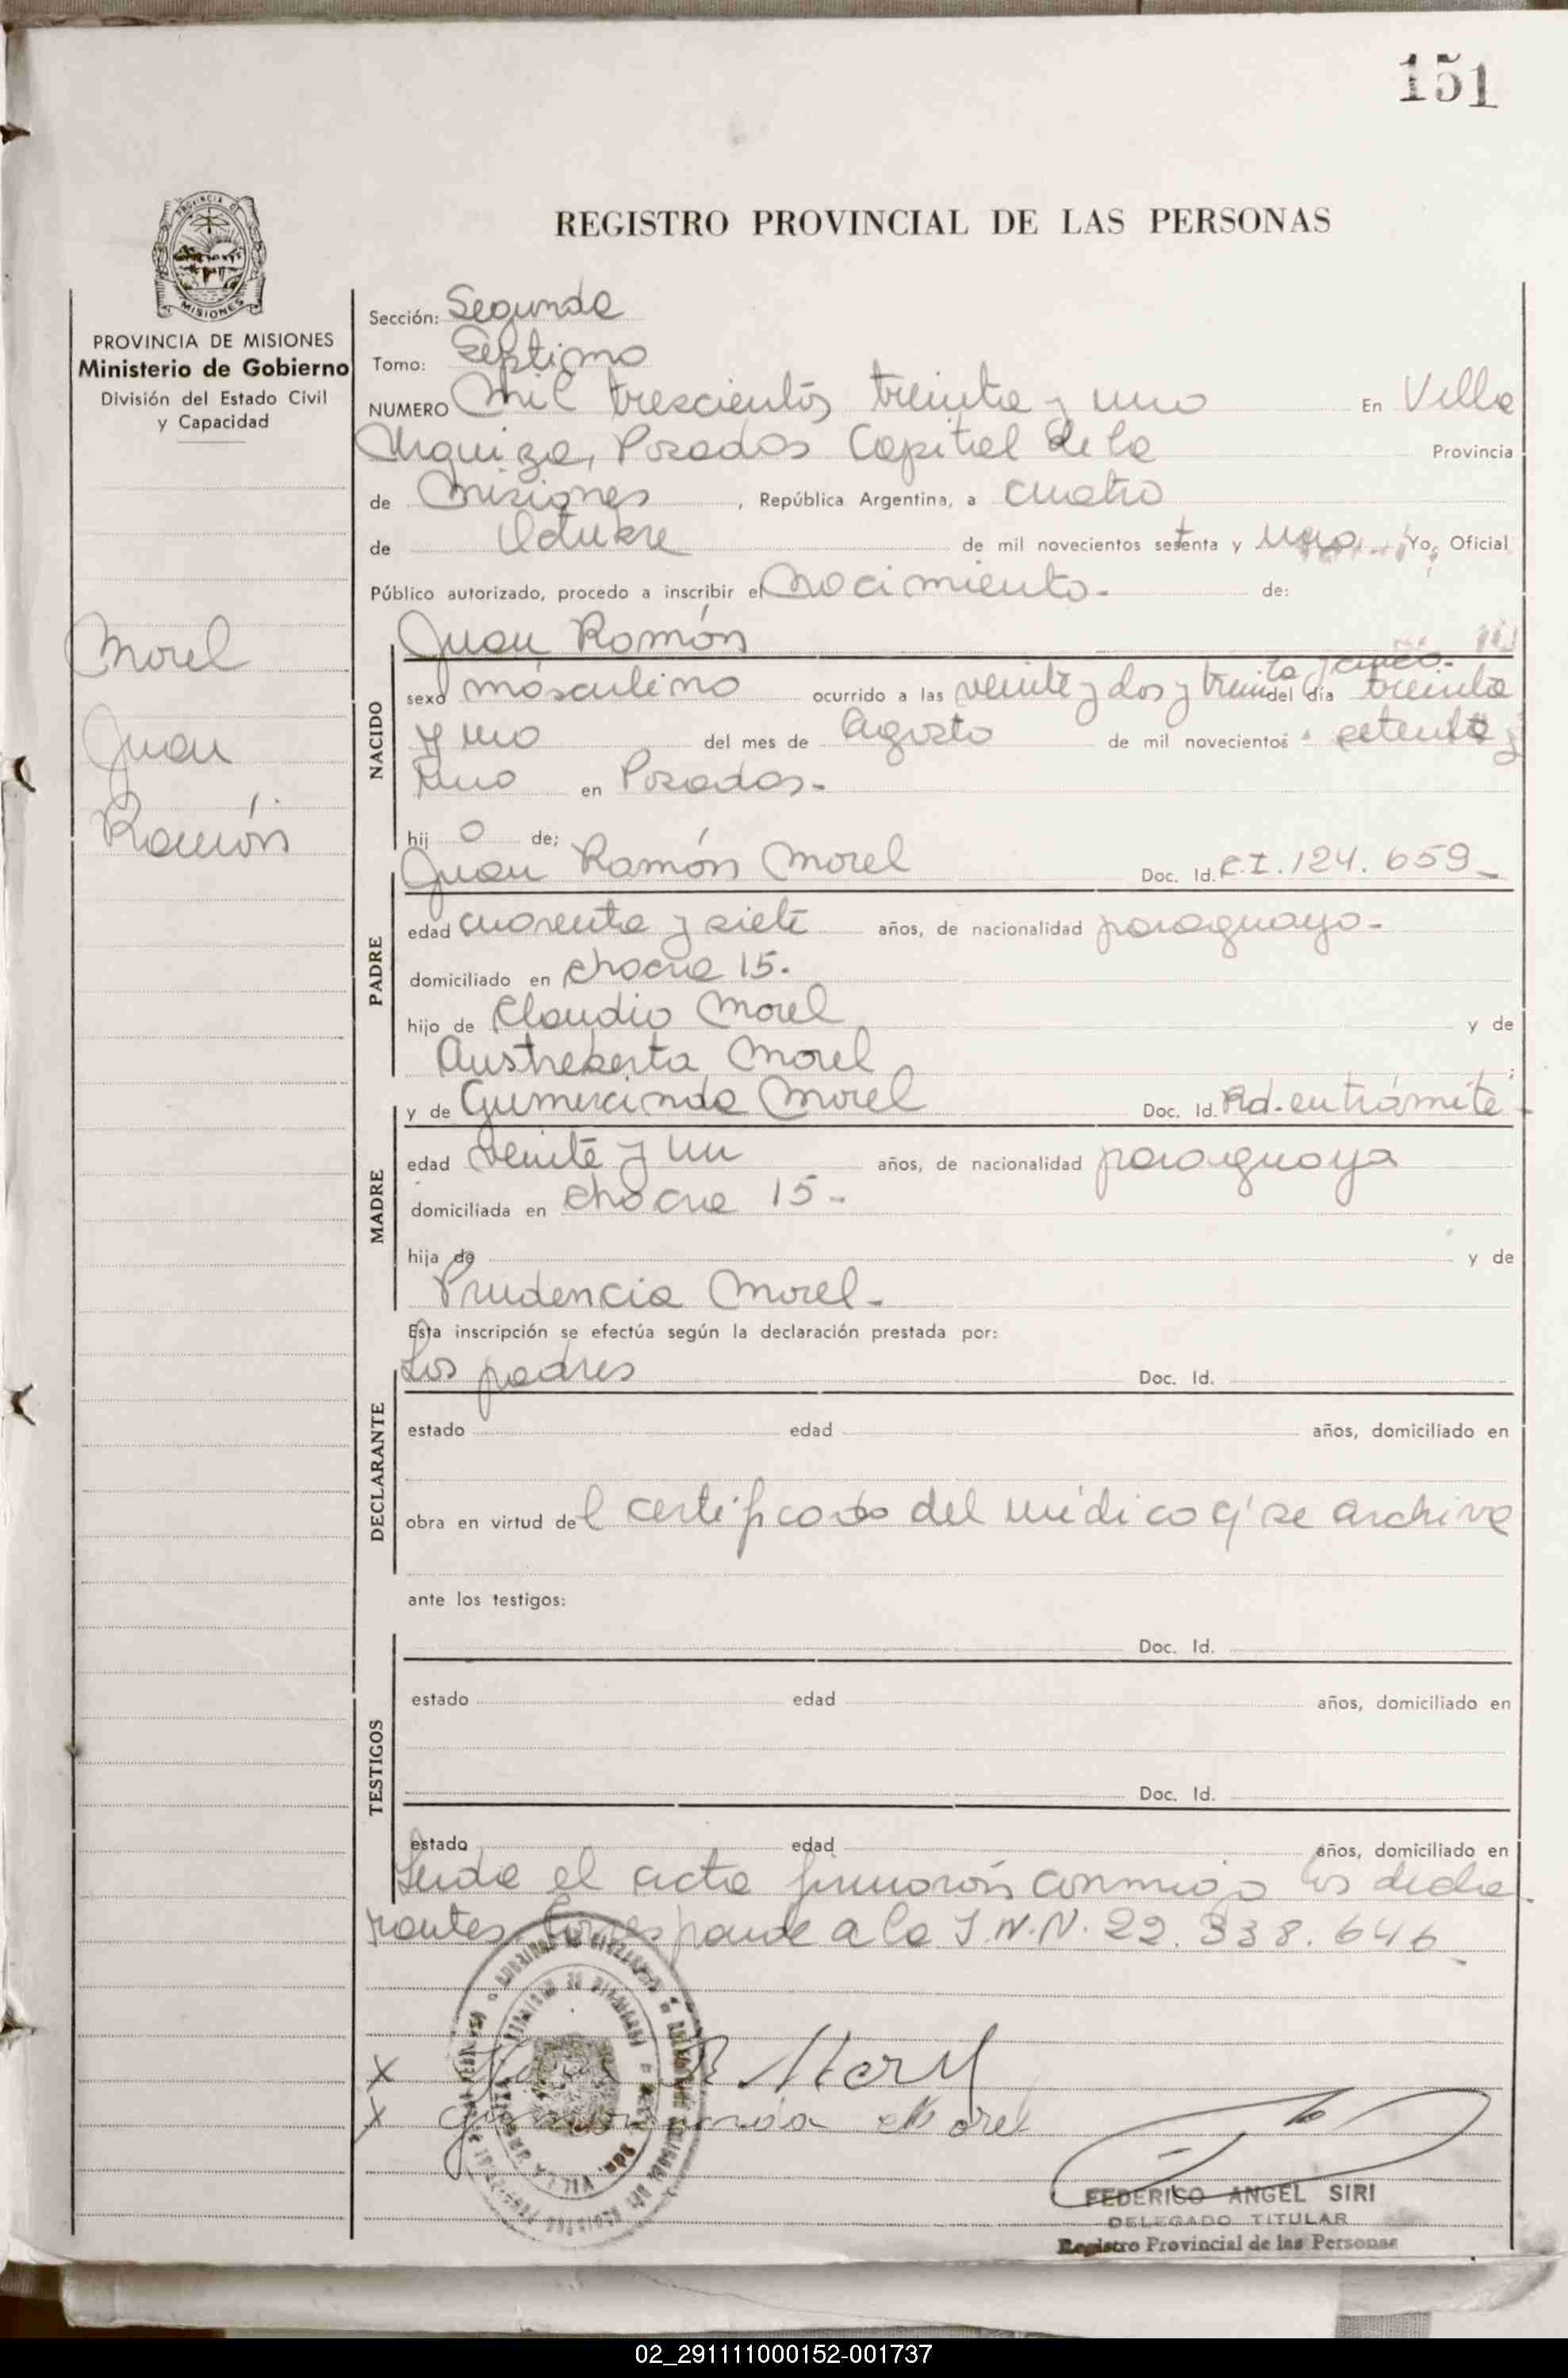 151
PROVINCIA DE
MISIONES
REGISTRO PROVINCIAL DE LAS PERSONAS
PROVINCIA DE MISIONES
Ministerio de Gobierno
División del Estado Civil
y Capacidad
Morel
Juan
Ramón
Sección: Segunda
Tomo: Séptimo
NUMERO Mil trescientos treinta y uno En Villa
Urquiza, Posadas Capital de la Provincia
de Misiones, República Argentina, a cuatro
de Octubre de mil novecientos setenta y uno Yo, Oficial
Público autorizado, procedo a inscribir el Nacimiento.- de:
Juan Ramón
NACIDO
sexo masculino ocurrido a las veinte y dos y treinta y cinco.- del día treinta
y uno del mes de Agosto de mil novecientos setenta y
uno en Posadas.-
hij o de;
Juan Ramón Morel Doc. Id. C.I. 124.659-
PADRE
edad cuarenta y siete años, de nacionalidad paraguayo.-
domiciliado en chacra 15.
hijo de Claudio Morel y de
Austreberta Morel ;
y de Gumercinda Morel Doc. Id. Rd. en trámite-
MADRE
edad veinte y un años, de nacionalidad paraguaya
domiciliada en chacra 15-
hija de y de
Prudencia Morel-
Esta inscripción se efectúa según la declaración prestada por:
Los padres Doc. Id.
DECLARANTE
estado edad años, domiciliado en
obra en virtud del certificado del médico q' se archiva
ante los testigos:
Doc. Id.
TESTIGOS
estado edad años, domiciliado en
Doc. Id.
estado edad años, domiciliado en
Leida el acta firmarón conmigo los decla
rantes Corresponde a la I.N.N. 22.338.646-
X R
X Gumercinda Morel
FEDERICO ANGEL SIRI
DELEGADO TITULAR
Registro Provincial de las Personas
02_291111000152-001737